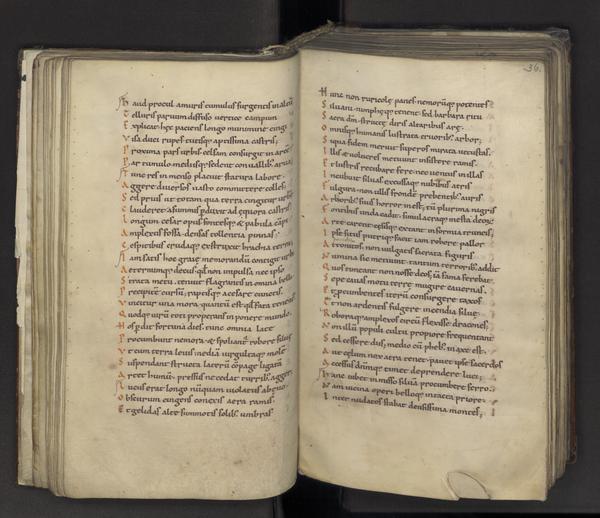 Haud procul a muris tumulus surgentis in altū
Telluris paruum diffuso uertice campum
Explicat hęc patiens longo munimine cingi
Visa duci rupes tutisq; aptissima castris;
Proxima pars urbis celsam consurgit in arcē
Par tumulo mediisq; sedent conuallib; arua;
Tunc res inmenso placuit statura labore.
Aggere diuersos uasto committere colles;
Sed prius ut totam qua terra cingitur urbē
Clauderet. a summis pduxit ad equora castris
Longum cesar opus. fontesq; & pabula cāpi
Amplexus fossa. densas tollentia pinnas
Cespitibus crudaq; extruxit brachia terra;
Iam satis hoc graię memorandū contigit urbi
Aeternumq; decus. qđ non impulsa nec ipso
Strata metu. tenuit flagrantis in omnia belli
Precipitē cursū. raptisq; a cesare cunctis
Vincitur una mora. quantū est qđ fata tenent̄
Quodq; uirū toti properans inponere mundo
Hos pdit fortuna dies. tunc omnia late
Procumbunt nemora & spoliant̄ robore siluę.
Vt cum terra leuis mediā uirgultaq; molē
Suspendant. structa laterū cōpage ligatā
Artet humū. pressus ne cedat turrib; agger.
Lucus erat longo nūquam uiolatus ab ęuo
Obscurum cingens conexis aera ramis.
Et gelidas alte summotis solib; umbras
36.
Hunc non ruricolę panes. nemorūq; potentes
Siluani. nimphęq; tenent. sed barbara ritu
Sacra dm̄. structę diris altarib; arę.
Omnisq; humanis lustrata cruorib; arbor;
Siqua fidem meruit superos mirata uetustas.
Illis & uolucres metuunt insistere ramis.
Et lustris recubare ferę. nec uentus in illas
Incubuit siluas excussaq; nubib; atris
Fulgura. non ullis frondē prebentib; auris
Arborib; suus horror inest; tū plurima nigris
Fontibus unda cadit. simulacraq; mesta deorū
Arte carent. cęsisq; extant informia truncis;
Ipse situs putriq; facit iam robore pallor
Attonitos. non uulgatis sacrata figuris
Numina sic metuunt. tantum terrorib; addit
Quos timeant non nosse deos; iā fama ferebat.
Sepe cauas motu terrę mugire cauernas.
Et pcumbentes iterū consurgere taxos
Et non ardentis fulgere incendia siluę.
Roboraq; amplexos circū fluxisse dracones;
Non illū populi cultu propiore frequentant
Sed cessere dīs; medio cū phebus in axe est.
Aut cęlum nox atra tenet. pauet ipse sacerdos
Accessus. dominūq; timet deprendere luci;
Hanc iubet inmisso siluā procumbere ferro.
Nam uicina operi belloq; intacta priore
Inter nudatos stabat densissima montes;